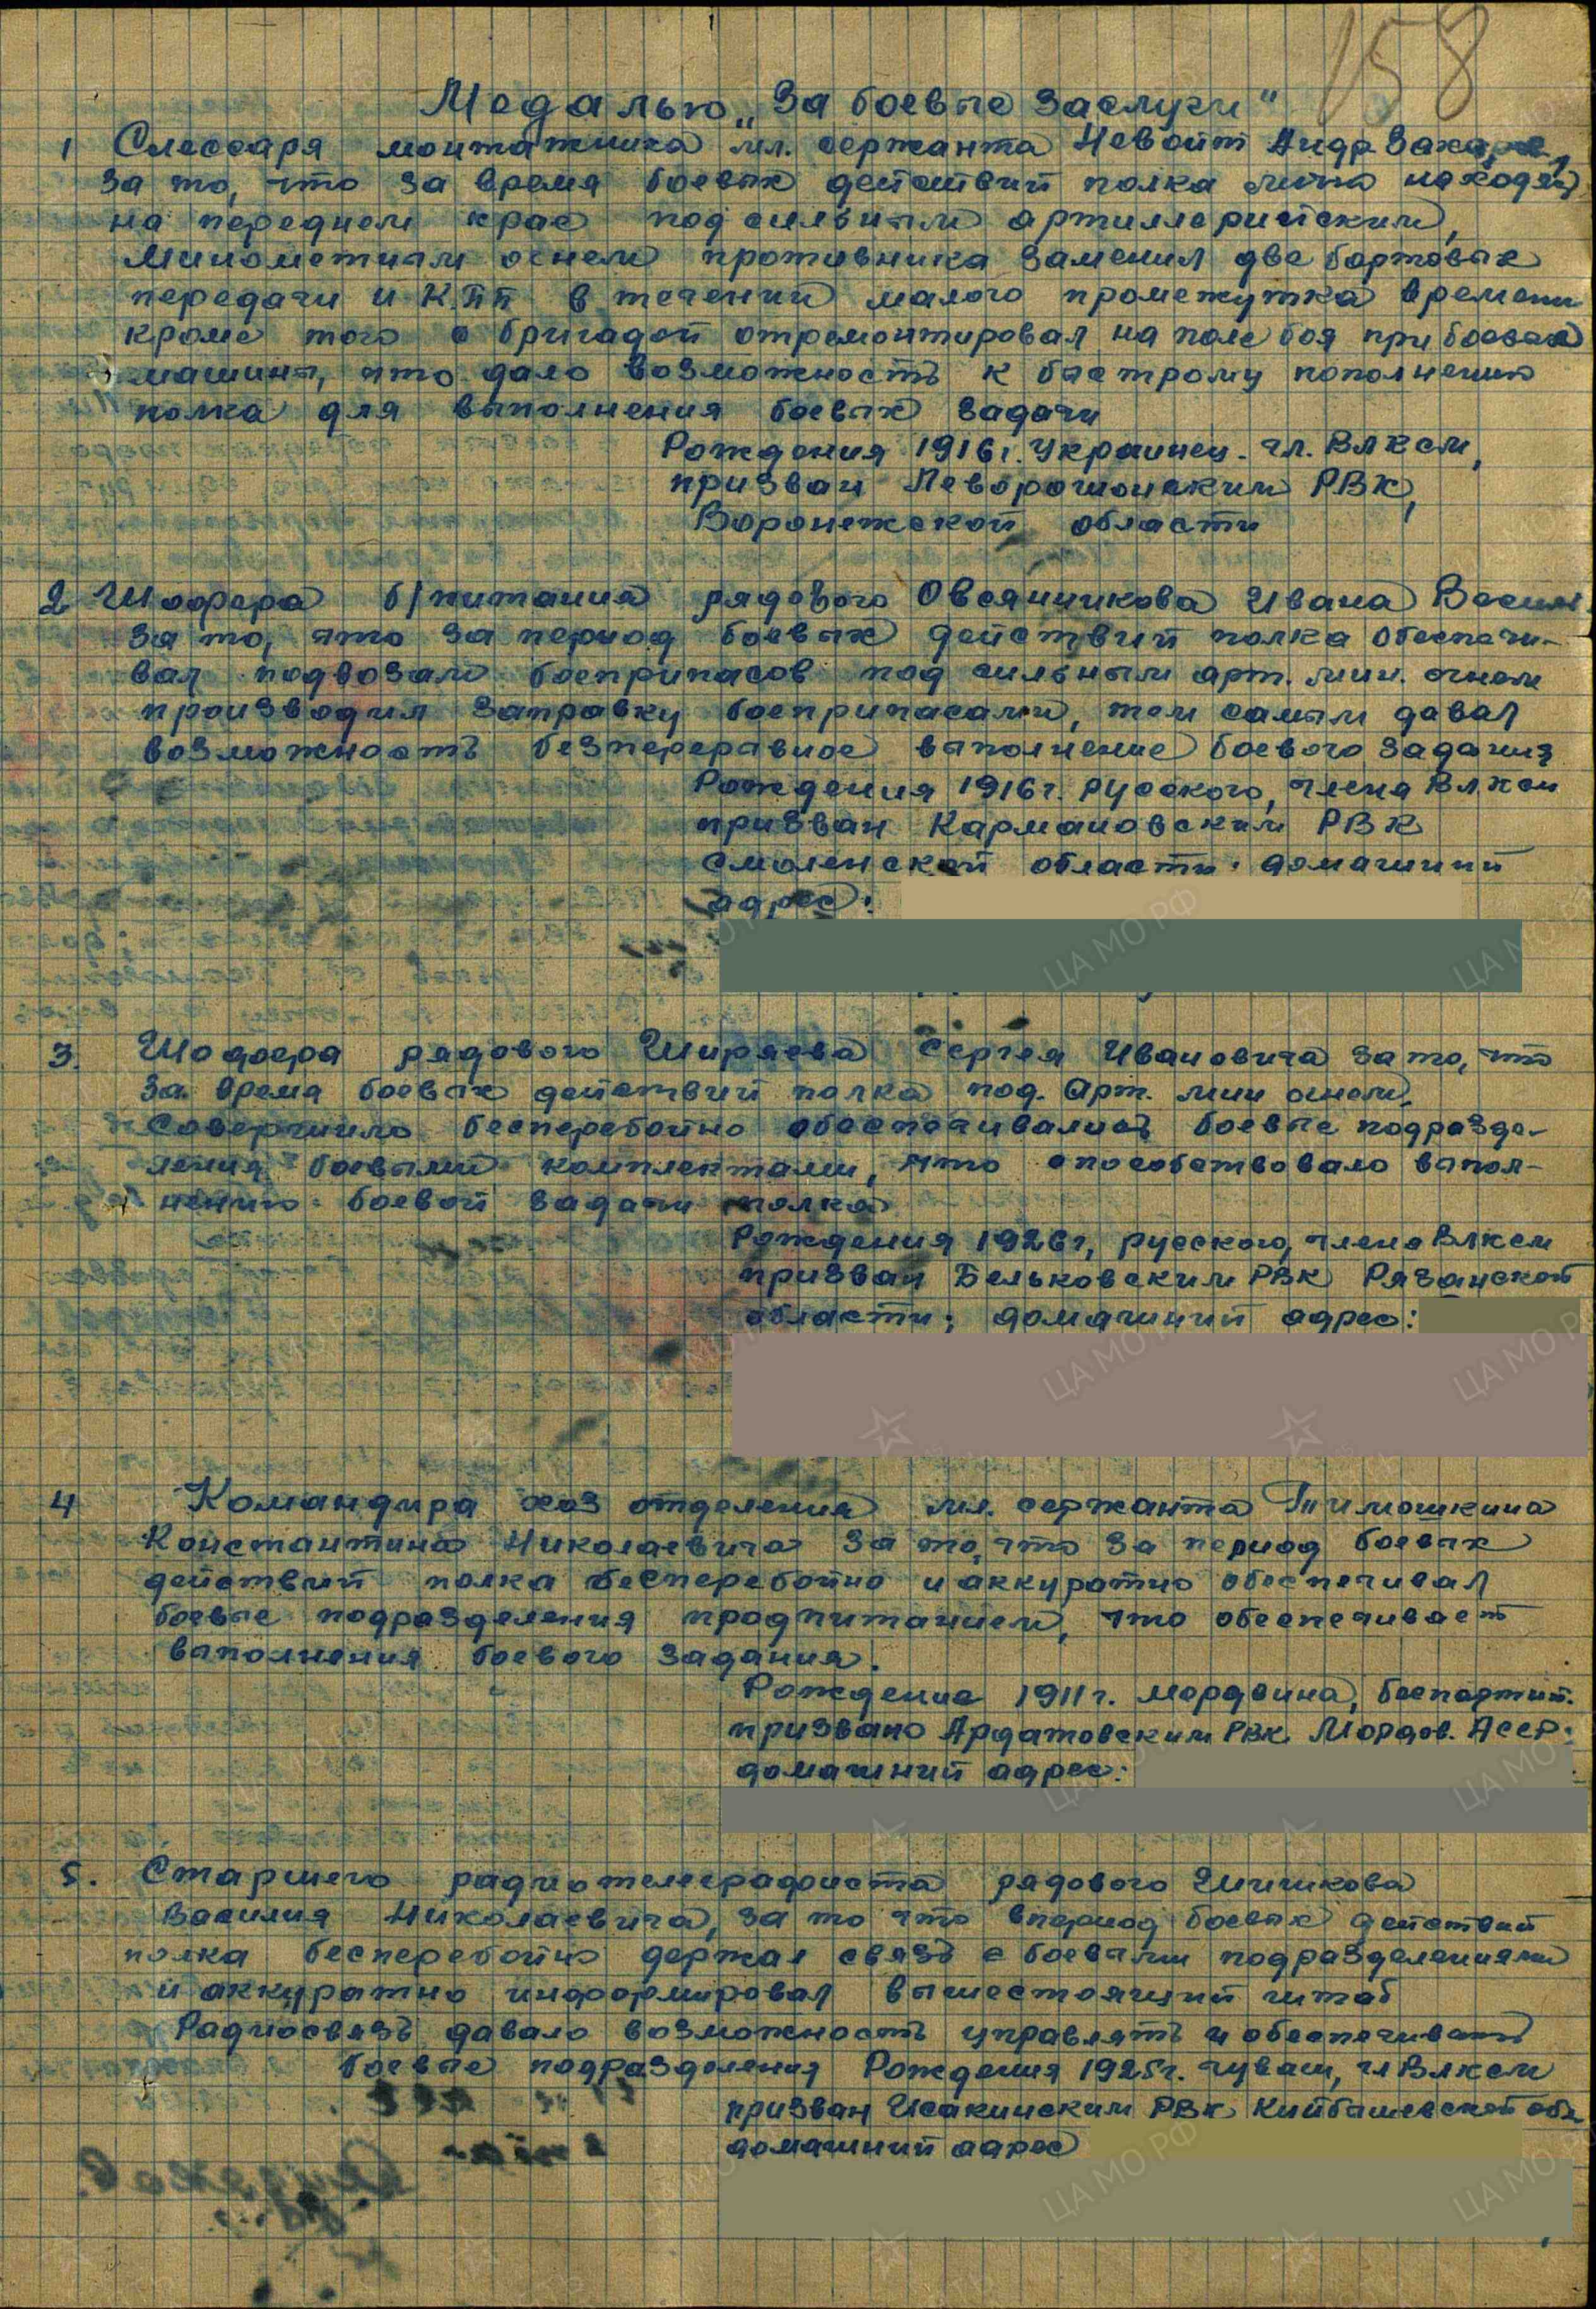 158
Медалью „За боевые заслуги"
1 Слессаря монтажника мл. сержанта Невойт
за то, что за время боевых действий полка
на переднем крае под сильным артиллерийским,
минометным огнем противника заменил две бортовые
передачи и К.П.П в течении малого промежутка времени
кроме того с бригадой отремонтировал на поле боя
машины, что дало возможность к быстрому пополнению
полка для выполнения боевых задачи
Рождения 1916г. Украинец. чл. ВЛКСМ,
призван РВК,
Воронежской области
2 Шофера б/питания рядового Овсянникова Ивана Васил
за то, что за период боевых действий полка обеспечи-
вал подвозам боеприпасов под сильным арт. мин. огнем
производил заправку боеприпасами, тем самым давал
возможность безперерывное выполнение боевого задания
Рождения 1916г. русского, члена ВЛКСМ
призван Кармановским РВК
Смоленской области. домашний
адрес:
3. Шофера рядового Ширяева Сергея Ивановича за то, что
за время боевых действий полка под. Арт. мин огнем,
Совершило бесперебойно обеспечивались боевые подразде-
ления боевыми комплектами, что способствовало выпол-
нению боевой задачи полка
Рождения 1926г, русского, члена ВЛКСМ
призван Бельковским РВК Рязанской
области; домашний адрес:
4 Командира хоз отделения мл. сержанта Тимошкина
Константина Николаевича за то, что за период боевых
действий полка бесперебойно и аккуратно обеспечивал
боевые подразделения продпитанием, что обеспечивает
выполнения боевого задания.
Рождение 1911г. мордвина, беспартий.
призвано Ардатовским РВК Мордов. АССР.
домашний адрес:
5. Старшего радиотелеграфиста рядового Шишкова
Василия Николаевича, за то что впериод боевых действий
полка бесперебойно держал связь с боевыми подразделениями
и аккуратно информировал вышестоящий штаб
Радиосвязь давало возможность управлять и обеспечивать
боевые подразделения Рождения 1925г. чуваш, чл ВЛКСМ
призван Исаклинским РВК Куйбышевской обл
домашний адрес